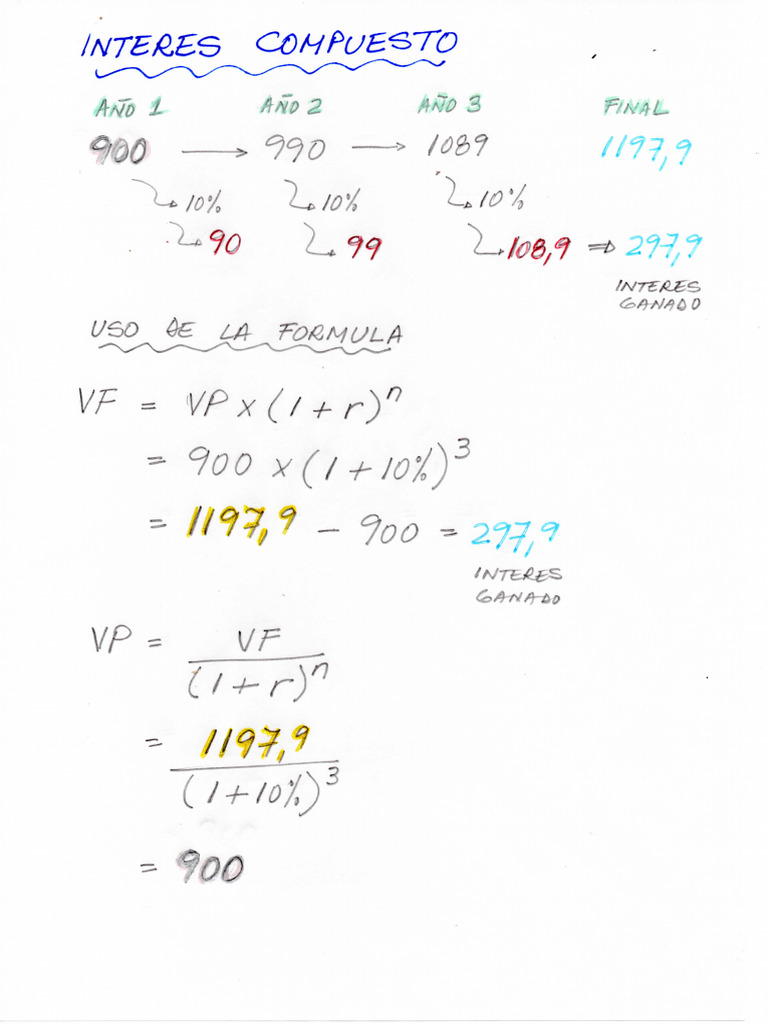 INTERES COMPUESTO
AÑO 1 AÑO 2 AÑO 3 FINAL
900 → 990 → 1089 1197,9
10% 10% 10%
90 99 108,9 ⇒ 297,9
INTERES
GANADO
USO DE LA FORMULA
VF = VP x (1 + r)^n
= 900 x (1 + 10%)^3
= 1197,9 - 900 = 297,9
INTERES
GANADO
VP = VF
(1 + r)^n
= 1197,9
(1 + 10%)^3
= 900